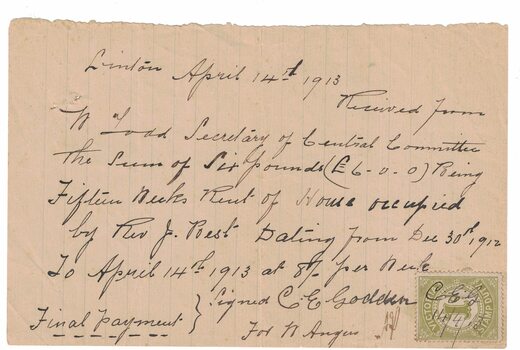 Linton April 14th 1913
Received from
W Toad Secretary of Central Committee
the Sum of Six Pounds (£6-0-0) Being
Fifteen Weeks Rent of House occupied
by Rev J. Best Dating from Dec 30th 1912
To April 14th 1913 at 8/- per Week
Signed C E Godden
Final Payment
For W Angus
C E G
14/4/
VICTORIA
STAMP DUTY